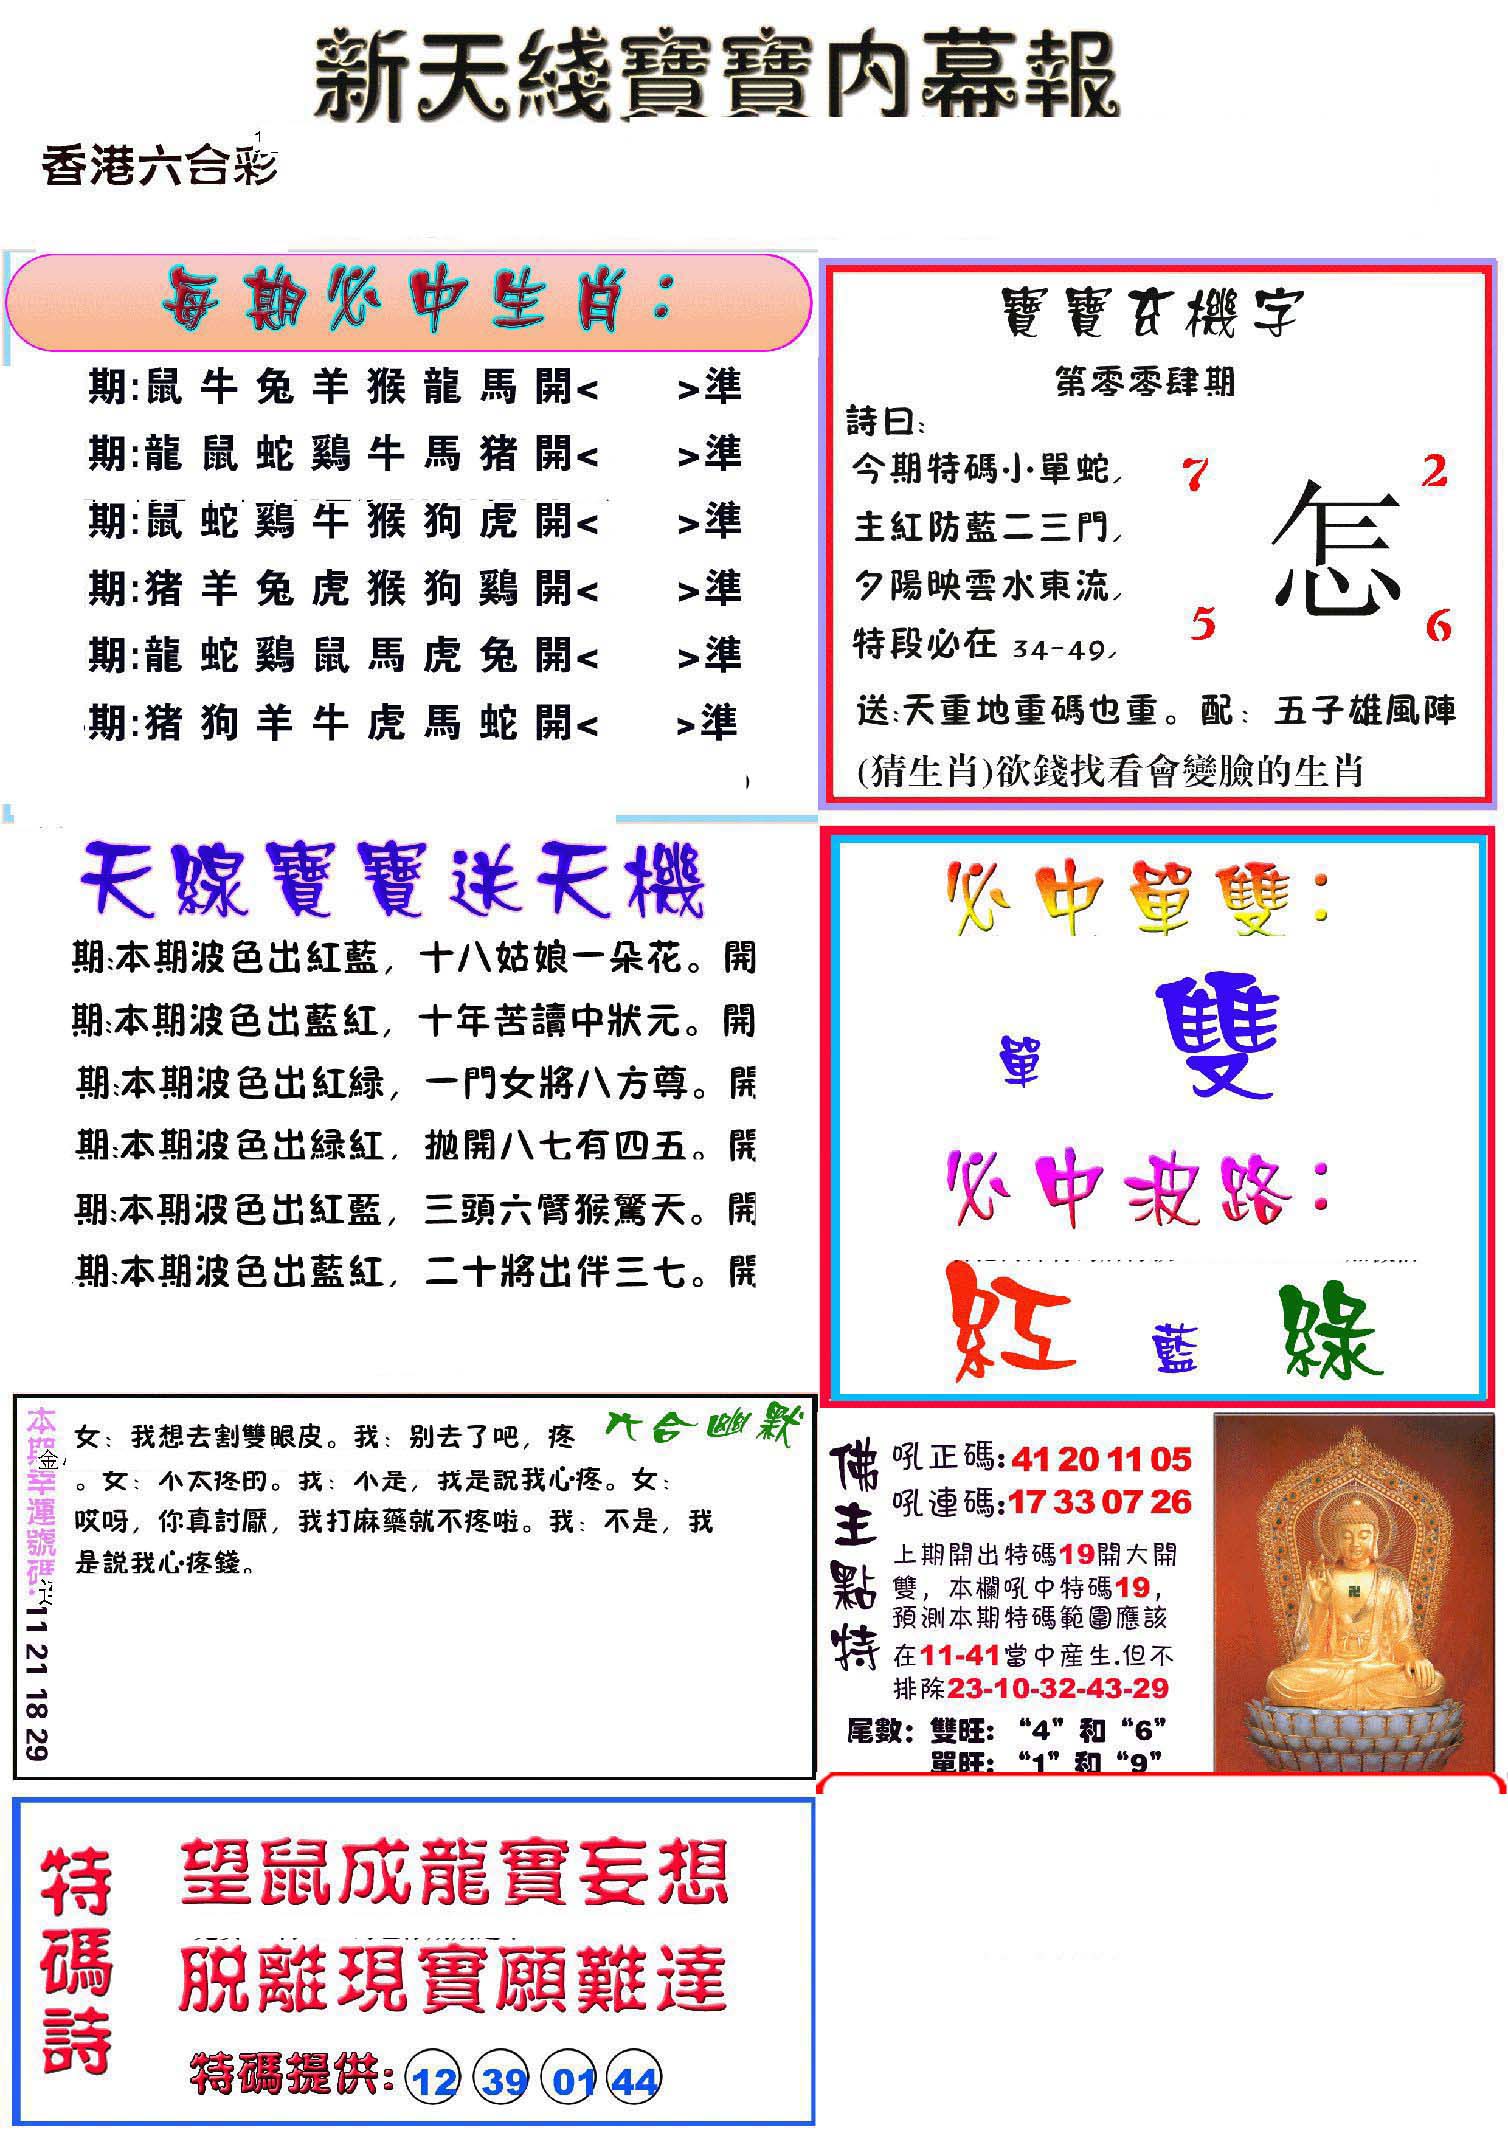 新天綫寶寶内幕報
香港六合彩
每期必中生肖：
期:鼠牛兔羊猴龍馬開< >準
期:龍鼠蛇鷄牛馬猪開< >準
期:鼠蛇鷄牛猴狗虎開< >準
期:猪羊兔虎猴狗鷄開< >準
期:龍蛇鷄鼠馬虎兔開< >準
期:猪狗羊牛虎馬蛇開< >準
寶寶玄機字
第零零肆期
詩曰:
今期特碼小單蛇,
主紅防藍二三門,
夕陽映雲水東流,
特段必在 34-49,
7 2
怎
5 6
送:天重地重碼也重。配：五子雄風陣
(猜生肖)欲錢找看會變臉的生肖
天線寶寶送天機
期:本期波色出紅藍，十八姑娘一朵花。開
期:本期波色出藍紅，十年苦讀中狀元。開
期:本期波色出紅緑，一門女將八方尊。開
期:本期波色出緑紅，拋開八七有四五。開
期:本期波色出紅藍，三頭六臂猴驚天。開
期:本期波色出藍紅，二十將出伴三七。開
必中單雙：
單 雙
必中波路：
紅 藍 綠
本期幸運號碼:
11 21 18 29
六合幽默
女：我想去割雙眼皮。我：别去了吧，疼
。女：不太疼的。我：不是，我是說我心疼。女：
哎呀，你真討厭，我打麻藥就不疼啦。我：不是，我
是說我心疼錢。
佛主點特
吼正碼:41 20 11 05
吼連碼:17 33 07 26
上期開出特碼19開大開
雙，本欄吼中特碼19，
預測本期特碼範圍應該
在11-41當中産生.但不
排除23-10-32-43-29
尾數：雙旺：“4”和“6”
單旺：“1”和“9”
特碼詩
望鼠成龍實妄想
脱離現實願難達
特碼提供: 12 39 01 44